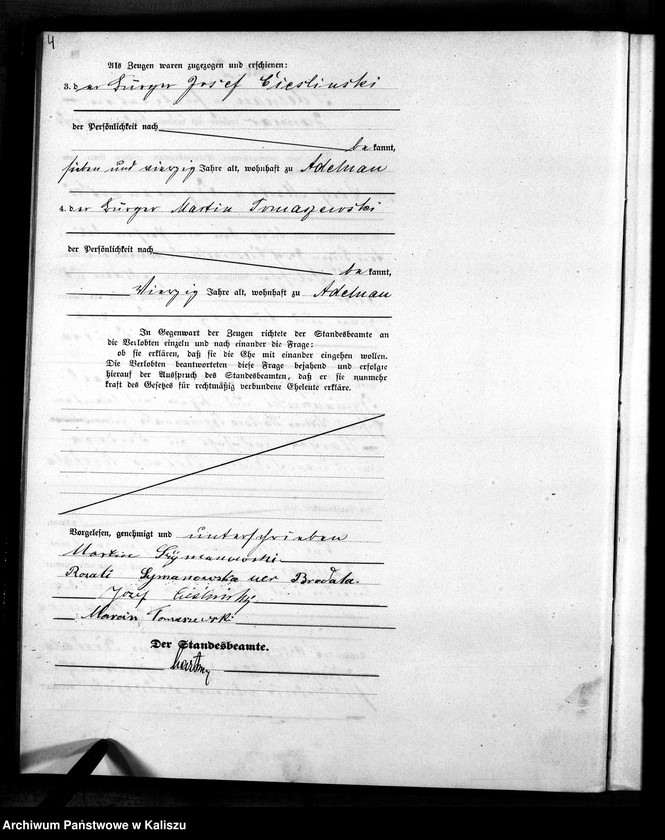 4
Als Zeugen waren zugezogen und erschienen:
3. der Bürger Josef Cieslinski
der Persönlichkeit nach
bekannt,
sieben und vierzig Jahre alt, wohnhaft zu Adelnau
4. der Bürger Martin Tomaszewski
der Persönlichkeit nach
bekannt,
Vierzig Jahre alt, wohnhaft zu Adelnau
In Gegenwart der Zeugen richtete der Standesbeamte an
die Verlobten einzeln und nach einander die Frage:
ob sie erklären, daß sie die Ehe mit einander eingehen wollen.
Die Verlobten beantworteten diese Frage bejahend und erfolgte
hierauf der Ausspruch des Standesbeamten, daß er sie nunmehr
kraft des Gesetzes für rechtmäßig verbundene Eheleute erkläre.
Vorgelesen, genehmigt und unterschrieben
Martin Szymanowski
Rozali Symanowska Brodala
Jozef Cieślinski
Marcin Tomaszewski
Der Standesbeamte.
Archiwum Państwowe w Kaliszu